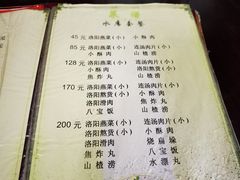 菜谱
水席套餐
45元 洛阳燕菜(小) 连汤肉片(小)
小酥肉
85元 洛阳燕菜(小) 连汤肉片(小)
小酥肉 山楂涝
128元 洛阳燕菜(小) 连汤肉片(小)
洛阳熬货(小) 小酥肉
焦炸丸 山楂涝
170元 洛阳燕菜(小) 连汤肉片(小)
洛阳熬货(小) 小酥肉
洛阳滑肉 焦炸丸
八宝饭 山楂涝
200元 洛阳燕菜(小) 连汤肉片(小)
洛阳熬货(小) 小酥肉
洛阳滑肉 烧扁垛
焦炸丸 八宝饭
山楂涝 水漂丸